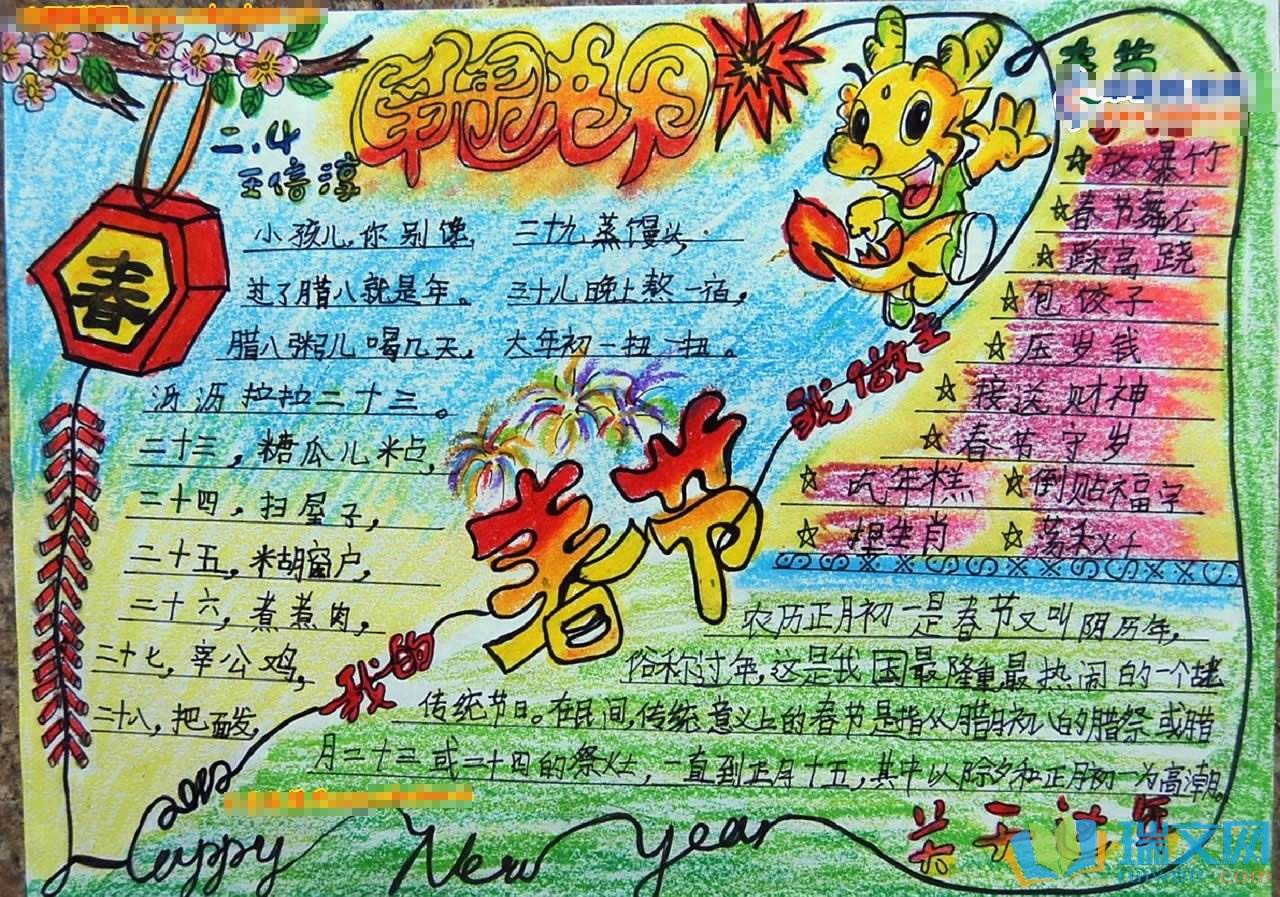 二.4
王倍淳
春
小孩儿,你别馋,
过了腊八就是年。
腊八粥儿喝几天,
沥沥拉拉二十三。
二十三,糖瓜儿粘,
二十四,扫屋子,
二十五,糊窗户,
二十六,煮煮肉,
二十七,宰公鸡,
二十八,把面发,
三十九蒸馒头.
三十儿晚上熬一宿,
大年初一扭一扭。
我的
春节
我做主
春节
☆放爆竹
☆春节舞龙
☆踩高跷
☆包饺子
☆压岁钱
☆接送财神
☆春节守岁
☆吃年糕 ☆倒贴福字
☆ 生肖 ☆荡秋
农历正月初一是春节又叫阴历年,
俗称过年,这是我国最隆重,最热闹的一个
传统节日。在民间,传统意义上的春节是指从腊月初八的腊祭或腊
月二十三或二十四的祭灶,一直到正月十五,其中以除夕和正月初一为高潮。
关于过年
2012
Happy New year
瑞文网
ruiwen.com